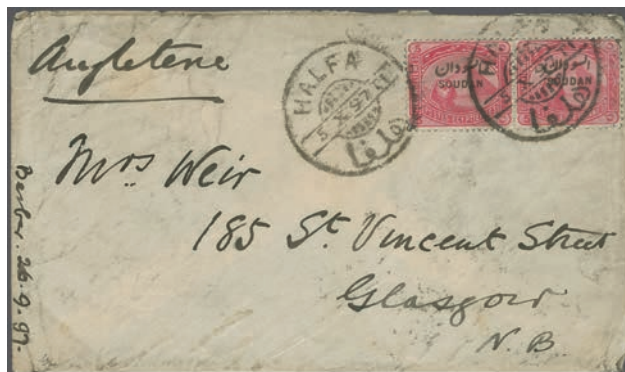 Angleterre
HALFA
5 X 97
حلفا
السودان
SOUDAN
السودان
SOUDAN
HALFA
5 X 97
حلفا
Mrs Weir
185 St. Vincent Street
Glasgow
N.B.
Berber. 26.9.97.